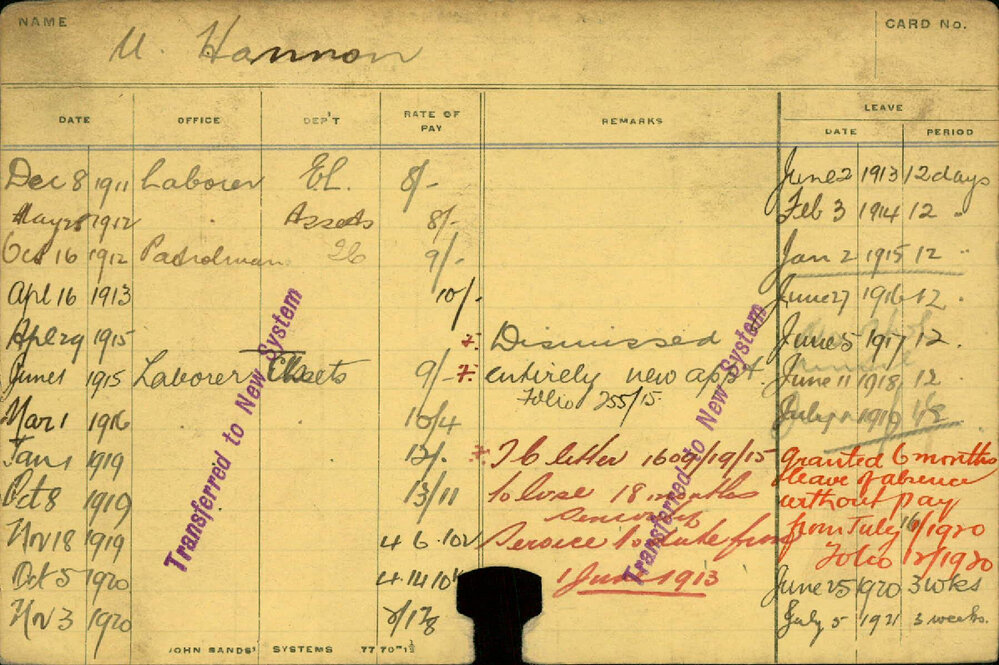 NAME
M. Hannon
CARD No.
DATE OFFICE DEP'T RATE OF PAY REMARKS LEAVE
DATE PERIOD
Dec 8 1911 Laborer EL. 8/- June 2 1913 12 days
May 28 1912 Assets 8/- Feb 3 1914 12 "
Oct 16 1912 Patrolman 9/- Jan 2 1915 12 "
Apl 16 1913 10/- June 27 1916 12 "
Apl 29 1915 Dismissed June 5 1917 12 "
June 1 1915 Laborer Assets 9/- entirely new appt. June 11 1918 12 "
Folio 255/15
Mar 1 1916 10/4 July 1919
Jan 1 1919 12/- letter /19/15 granted 6 months
leave of absence
Oct 8 1919 13/11 to lose 18 months without pay
seniority
Nov 18 1919 4 6 10½ Service to date from from July 16/1920
Folio 12/1920
Oct 5 1920 4 14 10½ 1 June 1913 June 25 1920 3 wks
Nov 3 1920 July 5 1921 3 weeks.
Transferred to New System
Transferred to New System
JOHN SANDS' SYSTEMS